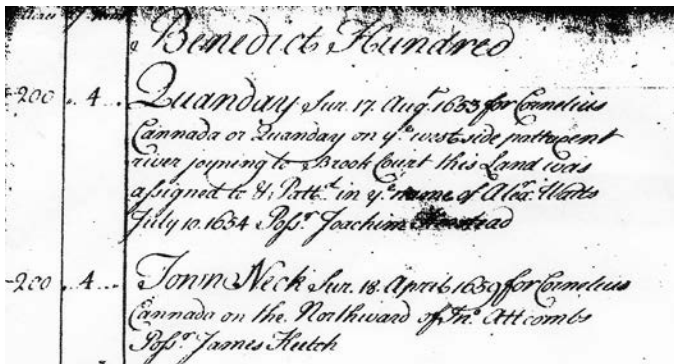 Benedict Hundred
200 .4.. Quanday Sur. 17. Augt. 1653 for Cornelius
Cannada or Quanday on ye west side pattuxent
river joyning to Brook Court this Land was
assigned to & Patt.d in ye name of Alexa. Watts
July 10. 1654 Possr. Joachim
200 .4... Town Neck Sur. 18. April 1659 for Cornelius
Cannada on the Northward of Jno. Attcombs
Possr. James Hutch